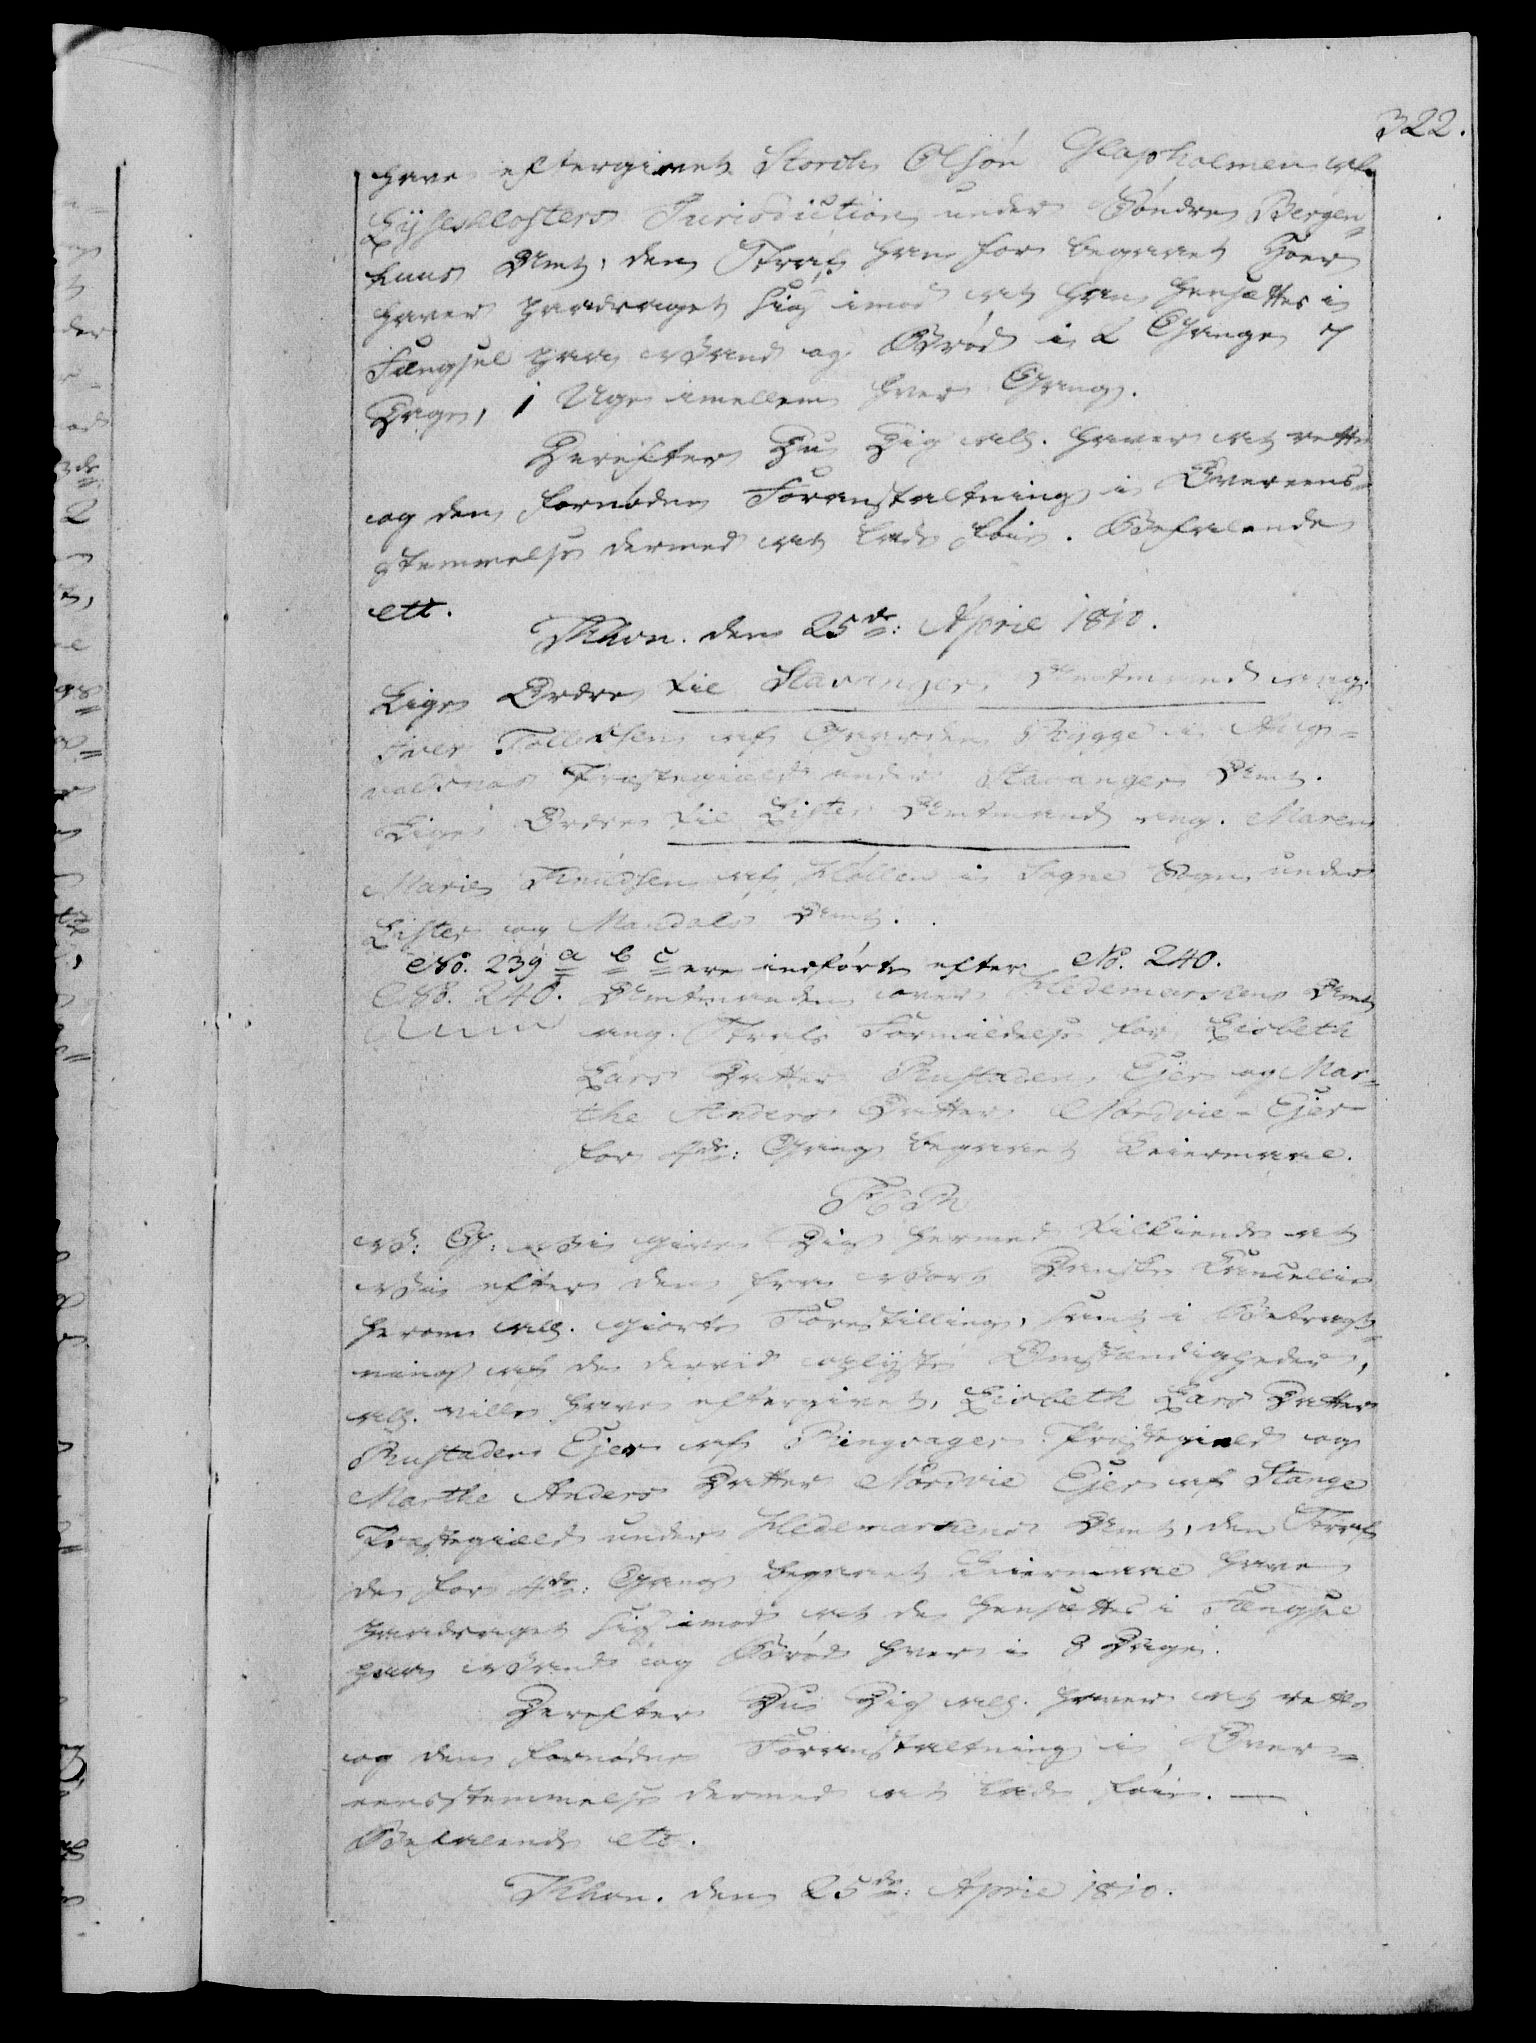 322.
have eftergivet Storck Olsøn Glapholmen af
Lyseklosters Jurisdiction under Søndre Bergen-
huus Amt, den Straf han for begaaet Hoer
haver paadraget sig imod at han hensættes i
Fængsel paa Vand og Brød i 2 Gange 7
Dage, 1 Uge imellem hver Gang.
Herefter Du Dig all. haver at rette
og den fornødne Foranstaltning i Overeens-
stemmelse dermed at lade føie. Befalende
ett.
Khvn. den 25de: April 1810.
Lige Ordre til Stavanger Amtmand ang.
Iver Tollefsen af Gaarden Rygge i Aug-
valdsnæs Præstegield under Stavanger Amt.
Lige Ordre til Lister Amtmand ang. Maren
Marie Knudsen af Høllen i Sogne Sogn under
Lister og Mandals Amt.
No. 239 a b c ere indførte efter No. 240.
No. 240. Amtmanden over Hedemarkens Amt
ang. Strafs Formildelse for Lisbeth
Lars Datter Rustaden Ejer og Mar-
the Anders Datter Nordvie-Ejer
for 4de: Gang begaaet Leiermaal.
V: G: Vi give Dig hermed tilkiende at
Vi efter den fra Vort Danske Cancellie
herom all. giorte Forestilling, samt i Betragt-
ning af de derved oplyste Omstændigheder,
all. ville have eftergivet, Lisbeth Lars Datter
Rustaden Ejer af Ringsager Præstegield og
Marthe Anders Datter Nordvie Ejer af Stange
Præstegield under Hedemarkens Amt, den Straf
de for 4de: Gang begaaet Leiermaal have
paadraget sig imod at de hensættes i Fængsel
paa Vand og Brød hver i 8 Dage.
Derefter Du Dig all. haver at rette
og den fornødne Foranstaltning i Over-
eensstemmelse dermed at lade føie. —
Befalende etc.
Khvn. den 25de: April 1810.